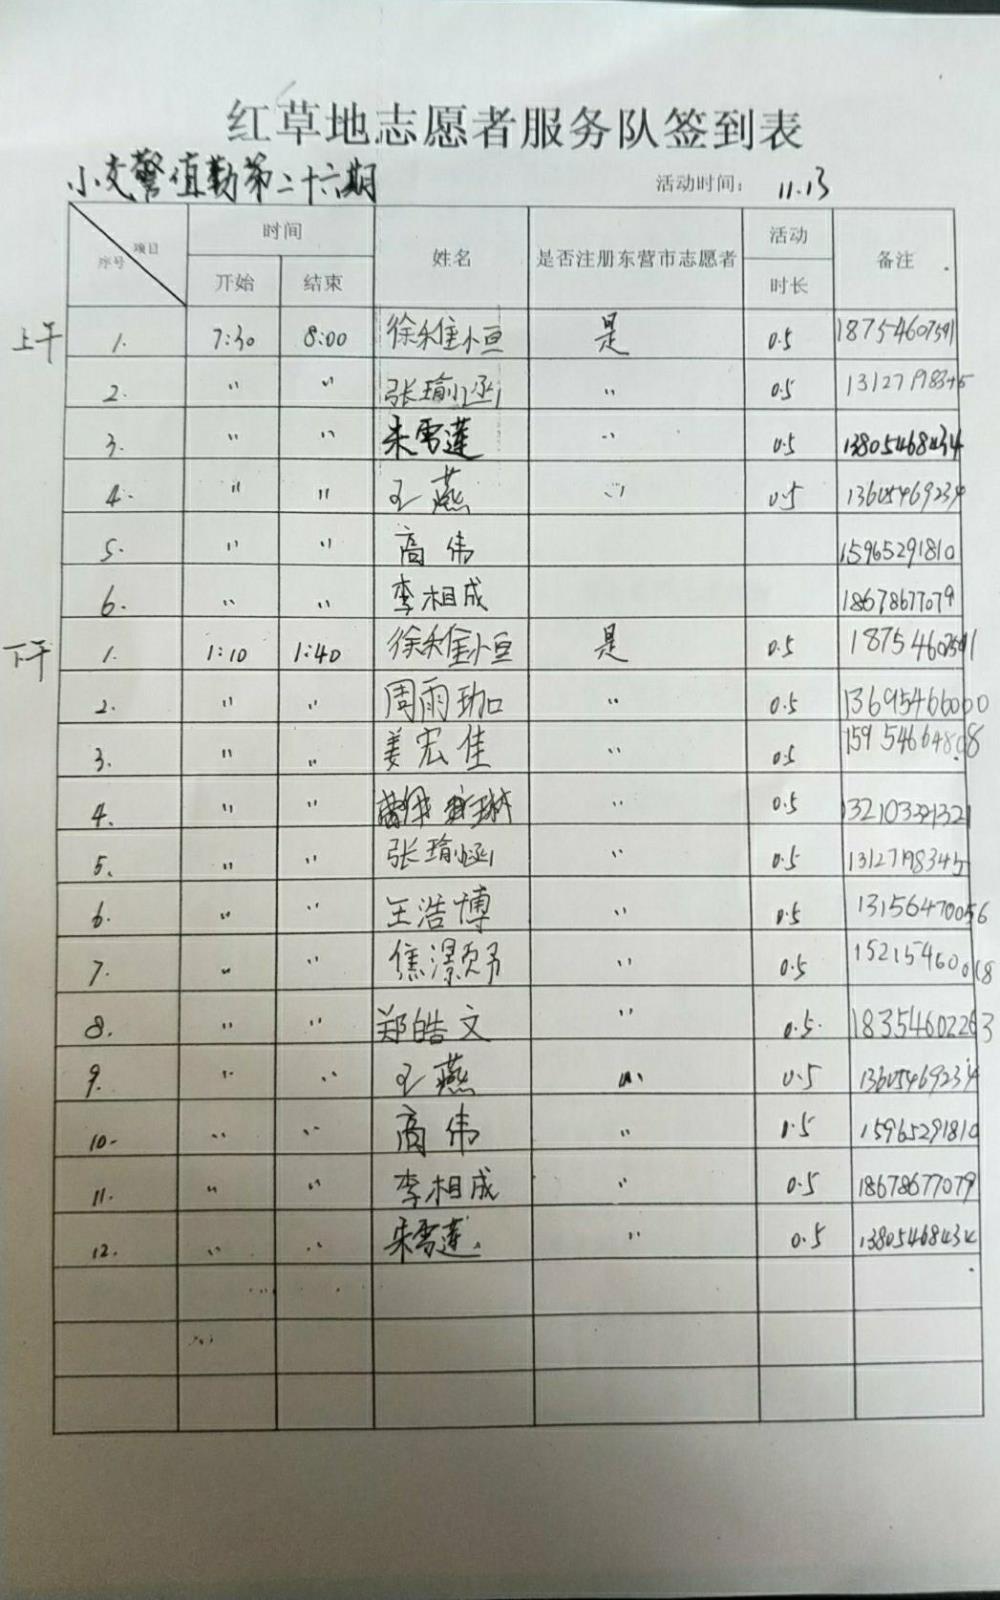 红草地志愿者服务队签到表
小交警值勤第二十六期 活动时间： 11.13
项目 序号 时间 姓名 是否注册东营市志愿者 活动 备注
开始 结束 时长
上午 1. 7:30 8:00 是 0.5 18754607591
2. 〃 〃 张瑜涵 〃 0.5 13127198345
3. 〃 〃 朱雪莲 〃 0.5 13805468434
4. 〃 〃 王燕 〃 0.5 13605469234
5. 〃 〃 高伟 15965291810
6. 〃 〃 李相成 18678677079
下午 1. 1:10 1:40 是 0.5 18754607591
2. 〃 〃 周雨珈 〃 0.5 13695466000
3. 〃 〃 姜宏佳 〃 0.5 15954664808
4. 〃 〃 〃 0.5
5. 〃 〃 张瑜涵 〃 0.5 13127198345
6. 〃 〃 王浩博 〃 0.5 13156470056
7. 〃 〃 〃 0.5 15215460018
8. 〃 〃 郑皓文 〃 0.5 18354602263
9. 〃 〃 王燕 〃 0.5 13605469234
10. 〃 〃 高伟 〃 0.5 15965291810
11. 〃 〃 李相成 〃 0.5 18678677079
12. 〃 〃 朱雪莲 〃 0.5 13805468434